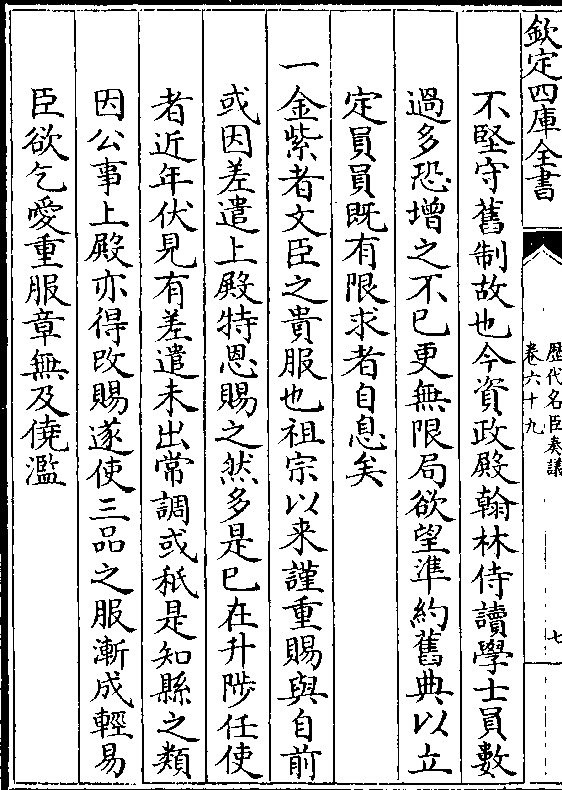 欽定四庫全書
歷代名臣奏議
卷六十九
七
不堅守舊制故也今資政殿翰林侍讀學士員數
過多恐增之不已更無限局欲望準約舊典以立
定員員既有限求者自息矣
一金紫者文臣之貴服也祖宗以来謹重賜與自前
或因差遣上殿特恩賜之然多是已在升陟任使
者近年伏見有差遣未出常調或秖是知縣之類
因公事上殿亦得改賜遂使三品之服漸成輕易
臣欲乞愛重服章無及僥濫